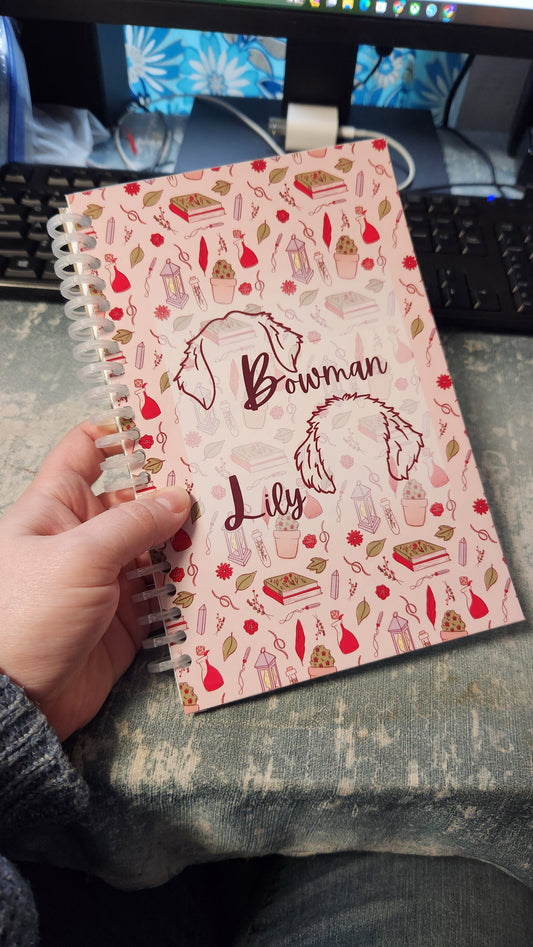 Bowman
Lily